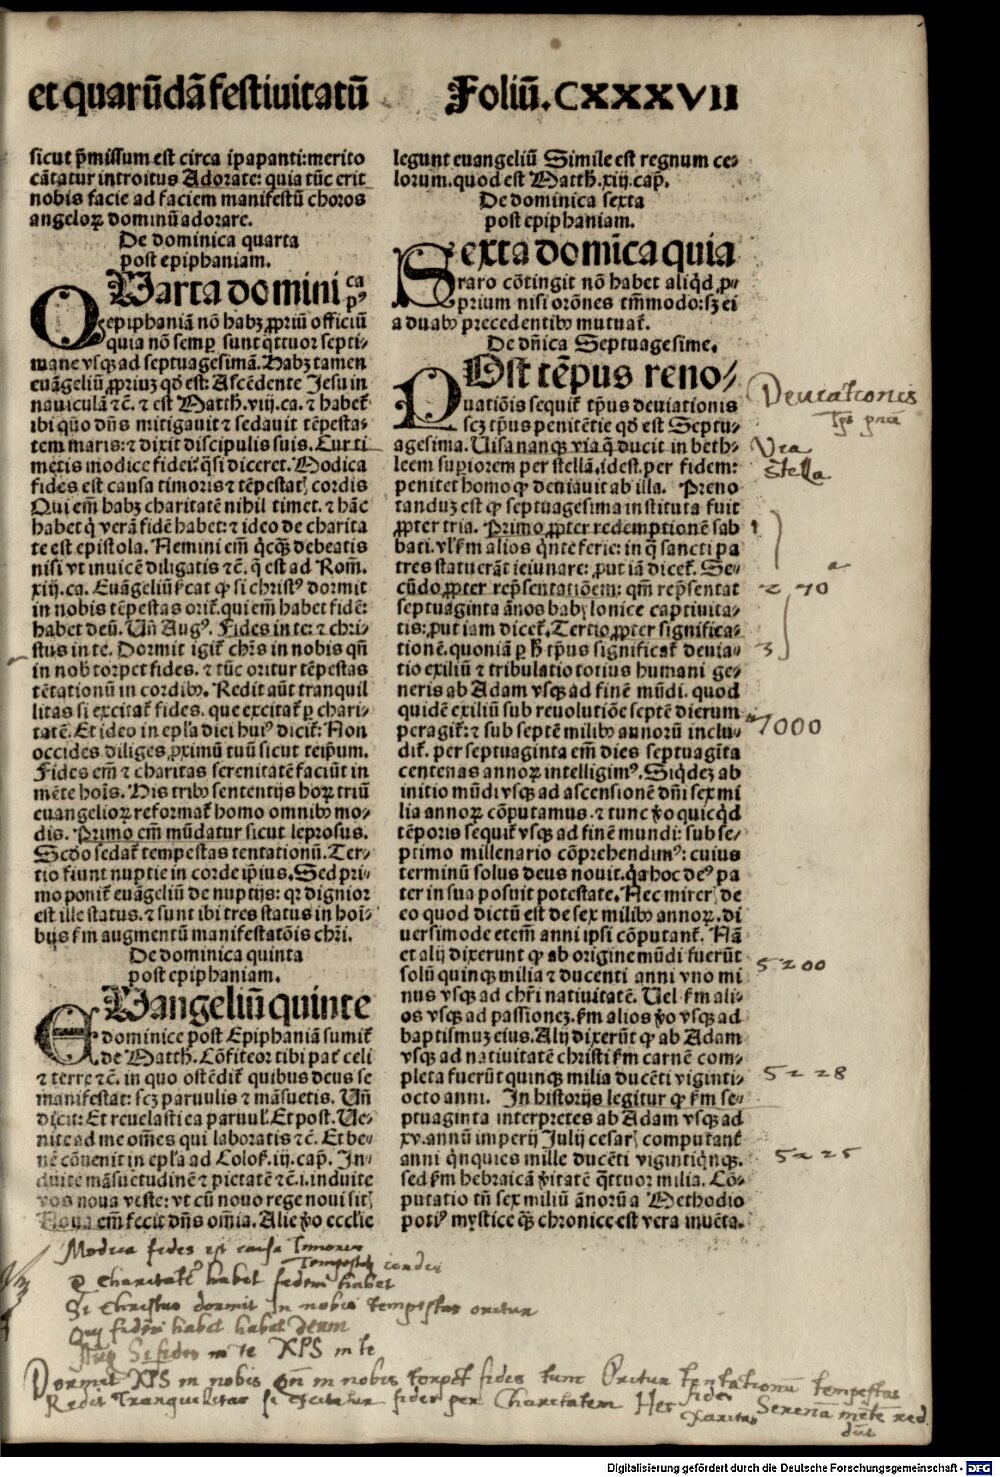 et quarūdā festiuitatū Foliū. CXXXVII
sicut p̄missum est circa ipapanti: merito
cātatur introitus Adorate: quia tūc erit
nobis facie ad faciem manifestū choros
angeloꝝ dominū adorare.
De dominica quarta
post epiphaniam.
QUarta domini ca p⁹
epiphaniā nō habꝫ ꝓpriū officiū
quia nō semꝑ sunt q̄ttuor septi⸗
mane vsqꝫ ad septuagesimā. Habꝫ tamen
euāgeliū ꝓpriuꝫ qđ est: Ascēdente Jesu in
nauiculā ⁊c̄. ⁊ est Matth. viij. ca. ⁊ habet᷑
ibi quo dn̄s mitigauit ⁊ sedauit tēpesta⸗
tem maris: ⁊ dixit discipulis suis. Cur ti
metis modice fidei: q̄si diceret. Modica
fides est causa timoris ⁊ tēpestatꝭ cordis
Qui em̄ habꝫ charitatē nihil timet. ⁊ hāc
habet q̇ verā fidē habet: ⁊ ideo de charita
te est epistola. Nemini em̄ q̇cq̄ꝫ debeatis
nisi vt inuicē diligatis ⁊c̄. q̄ est ad Rom̄.
xiij. ca. Euāgeliū ẜcat ꝙ si christ⁹ dormit
in nobis tēpestas orit᷑. qui em̄ habet fidē:
habet deū. Uñ Aug⁹. Fides in te: ⁊ chri⸗
stus in te. Dormit igit᷑ chr̄s in nobis qn̄
in nob̄ torpet fides. ⁊ tūc oritur tēpestas
tētationū in cordibꝰ. Redit aūt tranquil
litas si excitat᷑ fides. que excitat᷑ ꝑ chari⸗
tatē. Et ideo in ep̄la diei hui⁹ dicit᷑: Non
occides diliges ꝓximū tuū sicut teip̄um.
Fides em̄ ⁊ charitas serenitatē faciūt in
mēte hoīs. His tribꝰ sententijs hoꝝ triū
euangelioꝝ reformat᷑ homo omnibꝰ mo⸗
dis. Primo em̄ mūdatur sicut leprosus.
Scđo sedat᷑ tempestas tentationū. Ter⸗
tio fiunt nuptie in corde ip̄ius. Sed pri⸗
mo ponit᷑ euāgeliū de nuptijs: qꝛ dignior
est ille status. ⁊ sunt ibi tres status in hoī⸗
bus ẜm augmentū manifestatōis chr̄i.
De dominica quinta
post epiphaniam.
EUangeliū quinte
dominice post Epiphaniā sumit᷑
de Matth. Cōfiteor tibi pat᷑ celi
⁊ terre ⁊c̄. in quo ostēdit᷑ quibus deus se
manifestat: scꝫ paruulis ⁊ māsuetis. Uñ
dicit: Et reuelasti ea paruul̄. Et post. Ue⸗
nite ad me om̄es qui laboratis ⁊c̄. Et be⸗
ne cōuenit in ep̄la ad Coloẜ. iij. cap̄. In⸗
duite māsuetudinē ⁊ pietatē ⁊c̄. i. induite
vos noua veste: vt cū nouo rege noui sitꝭ
Noua em̄ fecit dn̄s om̄ia. Alie ꝟo ecclie
legunt euangeliū Simile est regnum ce⸗
lorum. quod est Matth. xiij. cap̄.
De dominica sexta
post epiphaniam.
Sexta domīca quia
raro cōtingit nō habet aliqđ ꝓ⸗
prium nisi orōnes tm̄modo: sꝫ ei
a duabꝰ precedentibꝰ mutuat᷑.
De dn̄ica Septuagesime.
POst tēpus reno⸗
uatiōis sequit᷑ tp̄us deuiationis
scꝫ tp̄us penitētie qđ est Septu⸗
agesima. Uisa nanqꝫ via q̄ ducit in beth⸗
leem superiorem per stellā. idest. per fidem:
penitet homo ꝙ deuiauit ab illa. Preno
tanduꝫ est ꝙ septuagesima instituta fuit
ꝓpter tria. Primo ꝓpter redemptionē sab
bati. vl̄ ẜm alios q̇nte ferie: in q̄ sancti pa
tres statuerāt ieiunare: ꝓut iā dicet᷑. Se⸗
cūdo ꝓpter rep̄sentatiōem: qm̄ rep̄sentat
septuaginta ānos babylonice captiuita⸗
tis: ꝓut iam dicet᷑. Tertio ꝓpter significa⸗
tionē. quoniā ꝑ h̄ tp̄us significat᷑ deuia⸗
tio exiliū ⁊ tribulatio totius humani ge⸗
neris ab Adam vsqꝫ ad finē mūdi. quod
quidē exiliū sub reuolutiōe septē dierum
peragit᷑: ⁊ sub septē milibꝰ annorū inclu⸗
dit᷑. per septuaginta em̄ dies septuagīta
centenas annoꝝ intelligim⁹. Siqđeꝫ ab
initio mūdi vsqꝫ ad ascensionē dn̄i sex mi
lia annoꝝ cōputamus. ⁊ tunc ꝟo quicqđ
tēporis sequit᷑ vsqꝫ ad finē mundi: sub se⸗
ptimo millenario cōprehendim⁹: cuius
terminū solus deus nouit. q̇a hoc de⁹ pa
ter in sua posuit potestate. Nec miretꝭ de
eo quod dictū est de sex milibꝰ annoꝝ. di
uersimode etem̄ anni ipsi cōputant᷑. Nā
et alij dixerunt ꝙ ab origine mūdi fuerūt
solū quinqꝫ milia ⁊ ducenti anni vno mi
nus vsqꝫ ad chr̄i natiuitatē. Uel ẜm ali⸗
os vsqꝫ ad passioneꝫ. ẜm alios ꝟo vsqꝫ ad
baptismuꝫ eius. Alij dixerūt ꝙ ab Adam
vsqꝫ ad natiuitatē christi ẜm carnē com⸗
pleta fuerūt quinqꝫ milia ducēti viginti⸗
octo anni. In historijs legitur ꝙ ẜm se⸗
ptuaginta interpretes ab Adam vsqꝫ ad
xv. annū imperij Julij cesarꝭ computant᷑
anni q̇nquies mille ducēti vigintiq̇nqꝫ.
sed ẜm hebraicā ꝟitatē q̄ttuor milia. Cō⸗
putatio tn̄ sex miliū ānorū a Methodio
poti⁹ mystice q̄ꝫ chronice est vera inuēta.
Deuiationis
Via
Stella
1
2 70
3
7000
5200
5228
5225
Modica fides est causa Timoris
Tempestatꝭ cordis
Q Charitatē habet fidem habet
Si Christus dormit In nobis tempestas oritur
Qui fidem habet habet Deum
Aug Si fides in te XPS in te
Dormit XPS in nobis Qn̄ in nobis torpet fides tunc Oritur tentationū tempestas
Redit Tranquilitas si excitatur fides per Charitatem Hec fides Charitas Serenā mētē red
dūt
Digitalisierung gefördert durch die Deutsche Forschungsgemeinschaft - DFG